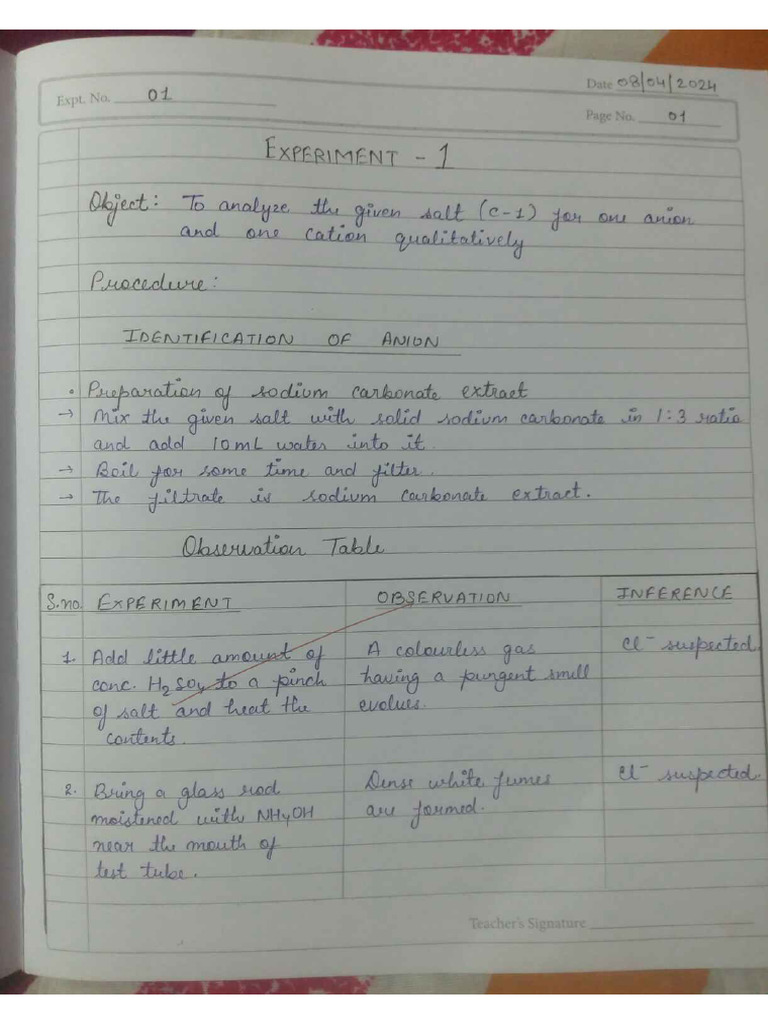 Date 08/04/2024
Expt. No. 01
Page No. 01
EXPERIMENT - 1
Object: To analyze the given salt (C-1) for one anion
and one cation qualitatively
Procedure:
IDENTIFICATION OF ANION
• Preparation of sodium carbonate extract
→ Mix the given salt with solid sodium carbonate in 1:3 ratio
and add 10mL water into it.
→ Boil for some time and filter.
→ The filtrate is sodium carbonate extract.
Observation Table
S.no. EXPERIMENT OBSERVATION INFERENCE
1. Add little amount of A colourless gas Cl⁻ suspected.
conc. H₂SO₄ to a pinch having a pungent smell
of salt and heat the evolves.
contents.
2. Bring a glass rod Dense white fumes Cl⁻ suspected.
moistened with NH₄OH are formed.
near the mouth of
test tube.
Teacher's Signature